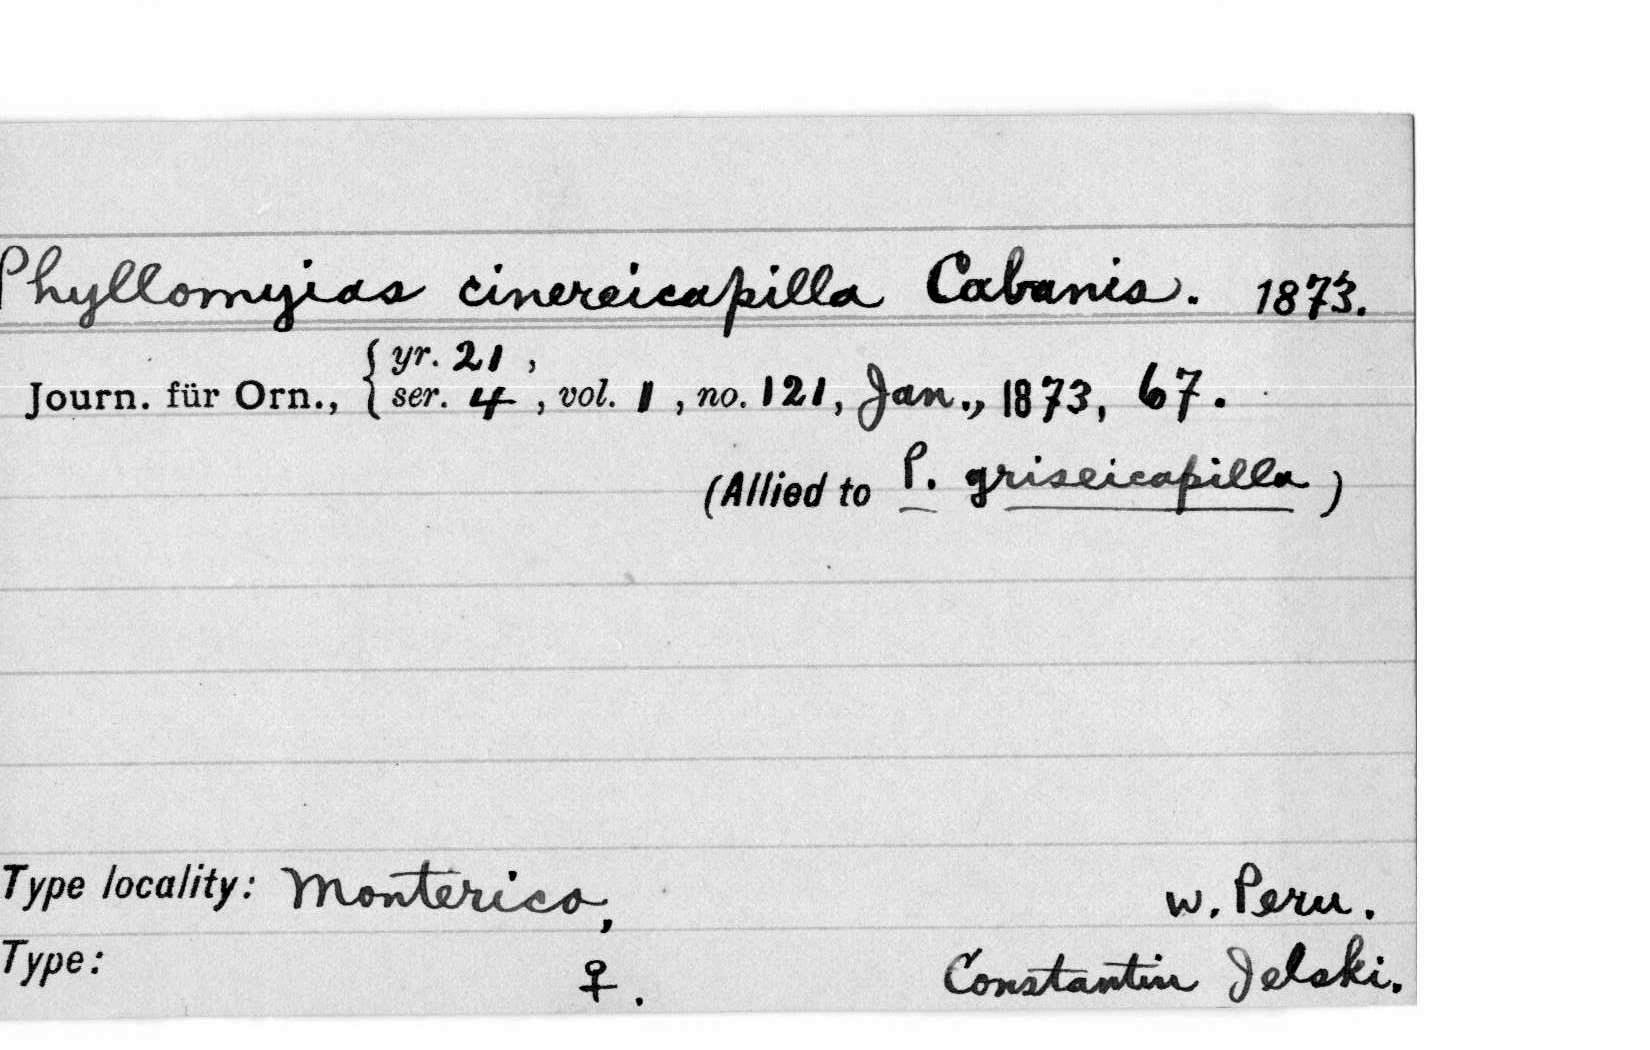 Phyllomyias cinereicapilla Cabanis. 1873.
Journ. für Orn., { yr. 21 ,
ser. 4 , vol. 1 , no. 121, Jan., 1873, 67.
(Allied to P. griseicapilla )
Type locality: Monterico, w. Peru.
Type: ♀. Constantin Jelski.